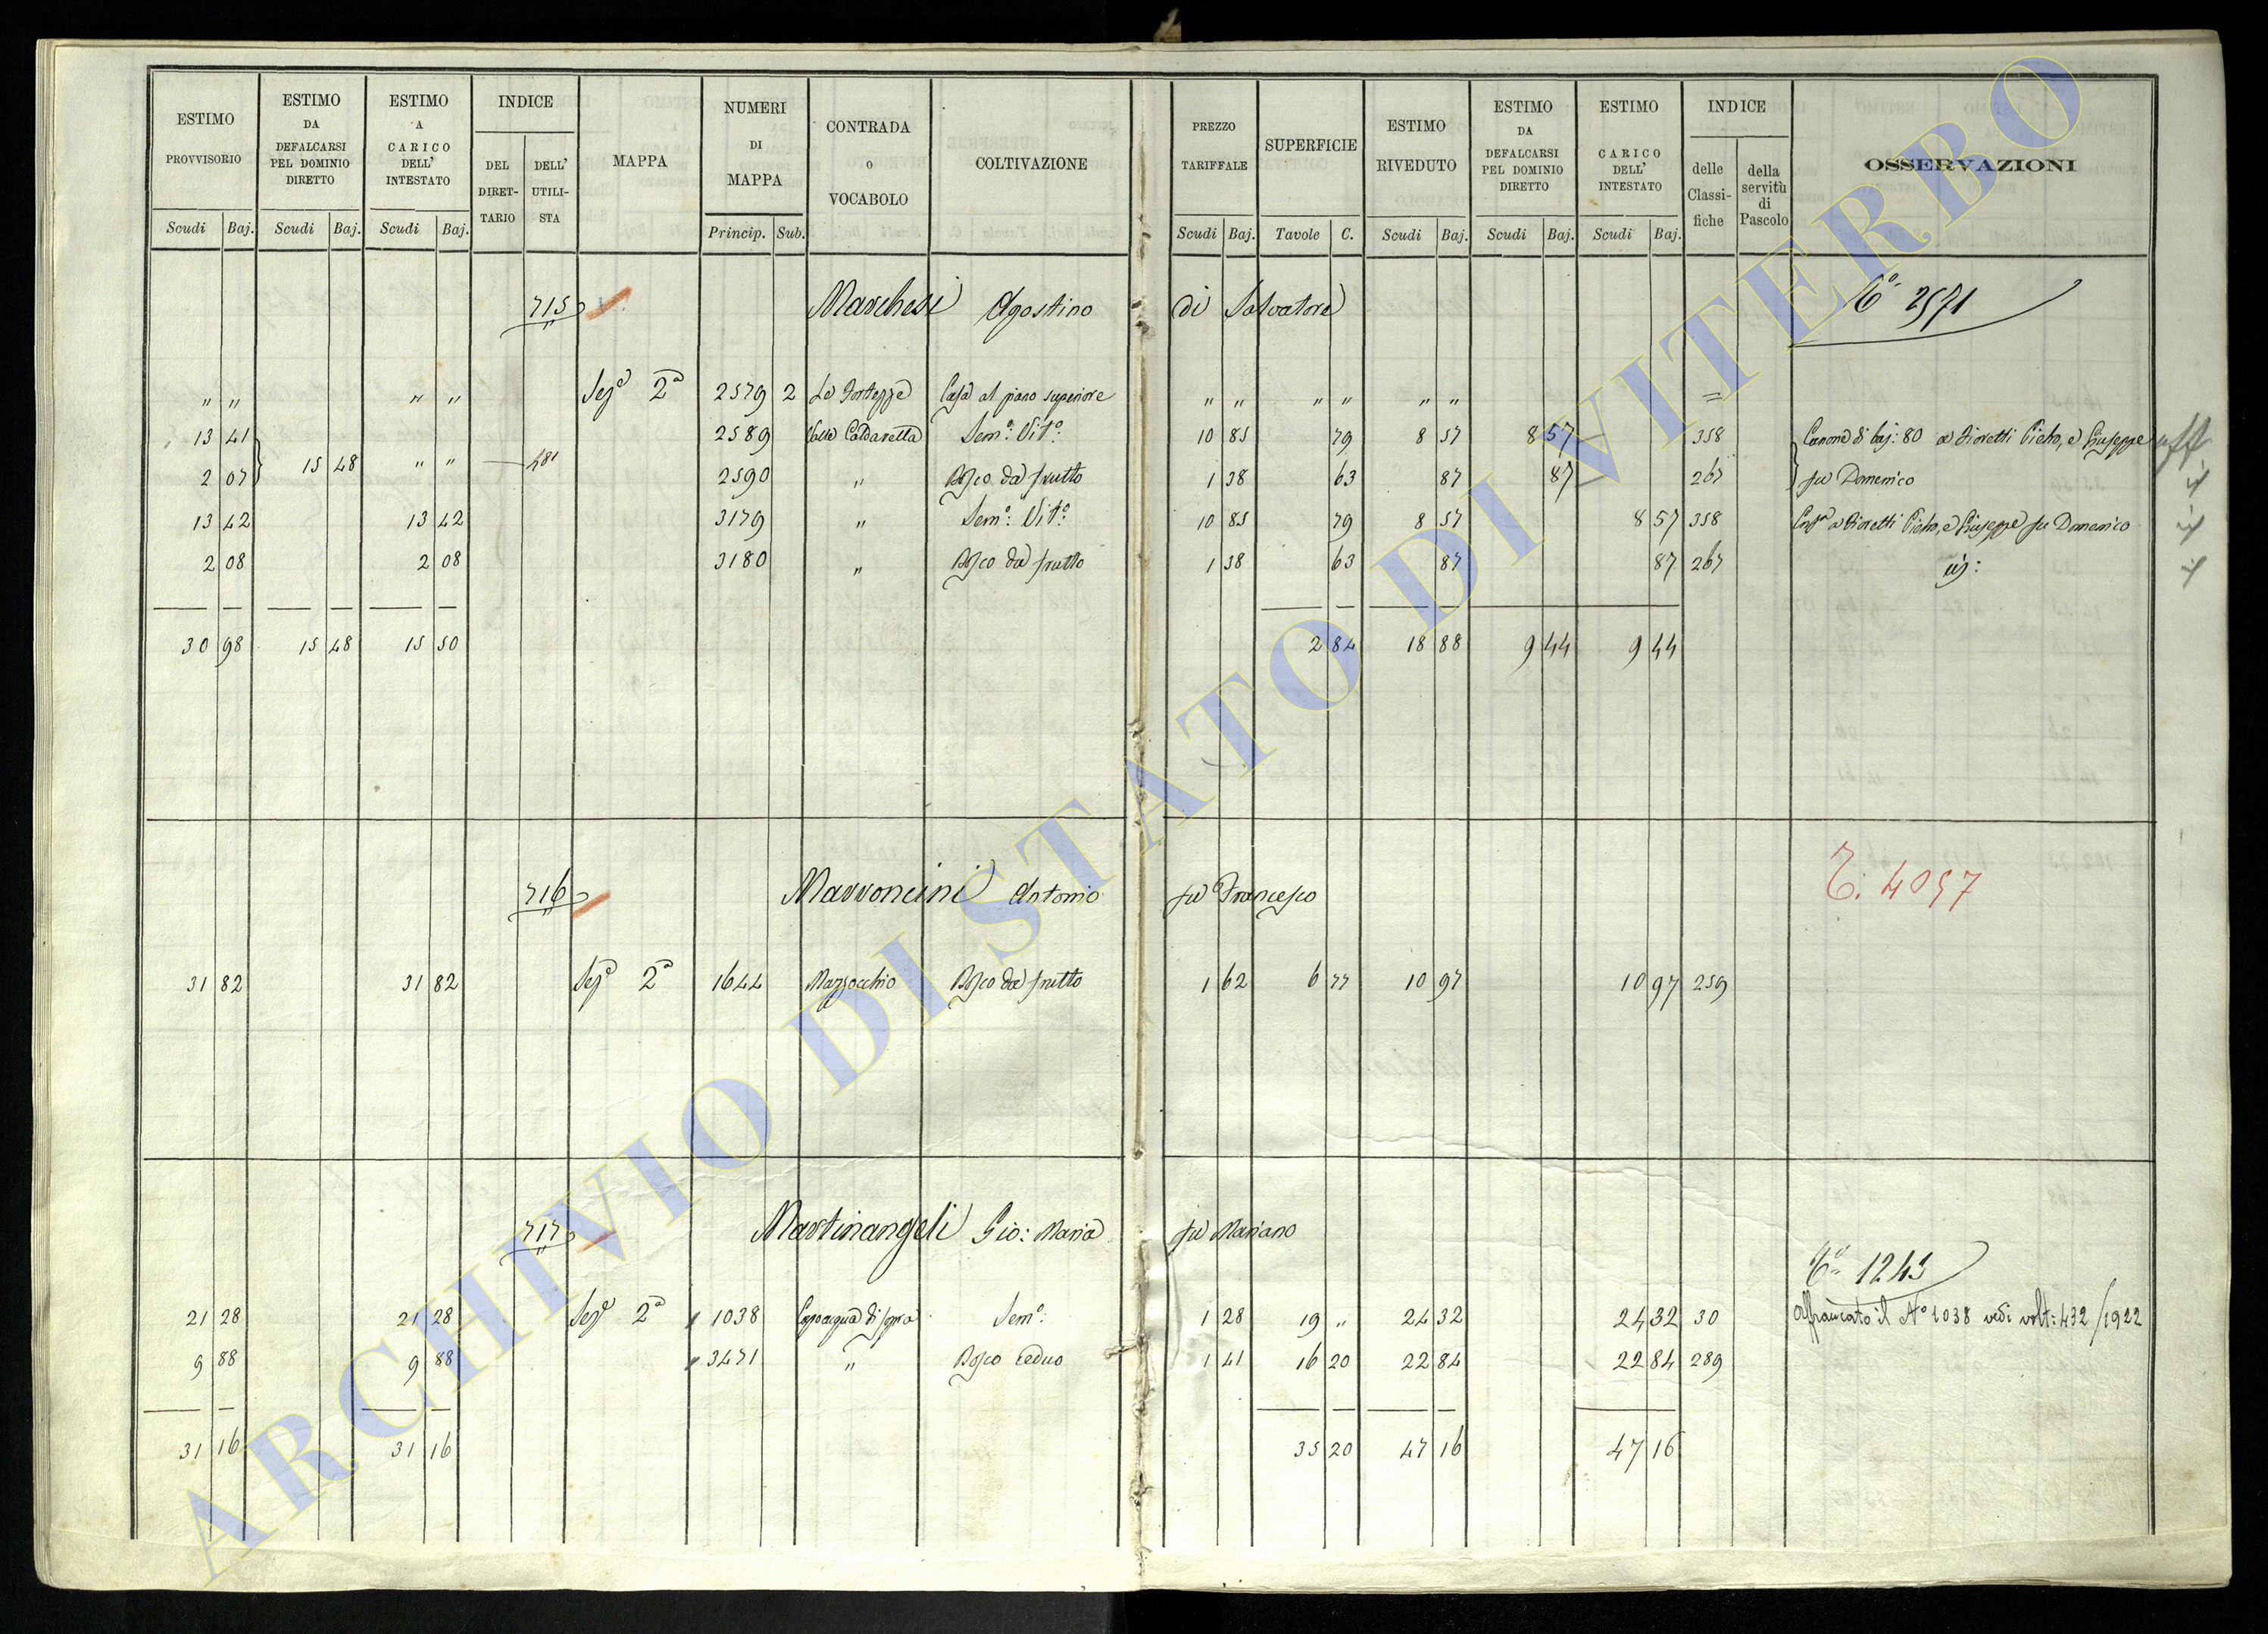 ESTIMO PROVVISORIO | ESTIMO DA DEFALCARSI PEL DOMINIO DIRETTO | ESTIMO A CARICO DELL' INTESTATO | INDICE DEL DIRET-TARIO | DELL' UTILI-STA | MAPPA | NUMERI DI MAPPA | CONTRADA o VOCABOLO | COLTIVAZIONE | PREZZO TARIFFALE | SUPERFICIE | ESTIMO RIVEDUTO | ESTIMO DA DEFALCARSI PEL DOMINIO DIRETTO | ESTIMO CARICO DELL' INTESTATO | INDICE delle Classi-fiche | della servitù di Pascolo | OSSERVAZIONI
Scudi | Baj. | Scudi | Baj. | Scudi | Baj. | Princip. | Sub. | Scudi | Baj. | Tavole | C. | Scudi | Baj. | Scudi | Baj. | Scudi | Baj.
715 Marchesi Agostino di Salvatore 2571
" " " " Sez.e 2a 2579 2 Le Fortezze Casa al piano superiore " " " " " " =
13 41 2589 Valle Caldarella Sem.o Vit.o 10 85 79 8 57 8 57 358 Canone di baj: 80 a Fioretti Pietro, e Giuseppe
2 07 15 48 " " 481 2590 " Bosco da frutto 1 38 63 87 87 267 fu Domenico
13 42 13 42 3179 " Sem.o Vit.o 10 85 79 8 57 8 57 358 a Fioretti Pietro, e Giuseppe fu Domenico
2 08 2 08 3180 " Bosco da frutto 1 38 63 87 87 267
30 98 15 48 15 50 2 84 18 88 9 44 9 44
716 Marroncini Antonio fu Francesco 4057
31 82 31 82 Sez.e 2a 1644 Mazzocchio Bosco da frutto 1 62 6 77 10 97 10 97 259
717 Martinangeli Gio: Maria fu Mariano
1243
21 28 21 28 Sez.e 2a 1038 Capacqua di sopra Sem.o: 1 28 19 " 24 32 24 32 30 Affrancato il No 1038 vedi volt: 432/1922
9 88 9 88 3471 " Bosco Ceduo 1 41 16 20 22 84 22 84 289
31 16 31 16 35 20 47 16 47 16
ARCHIVIO DI STATO DI VITERBO